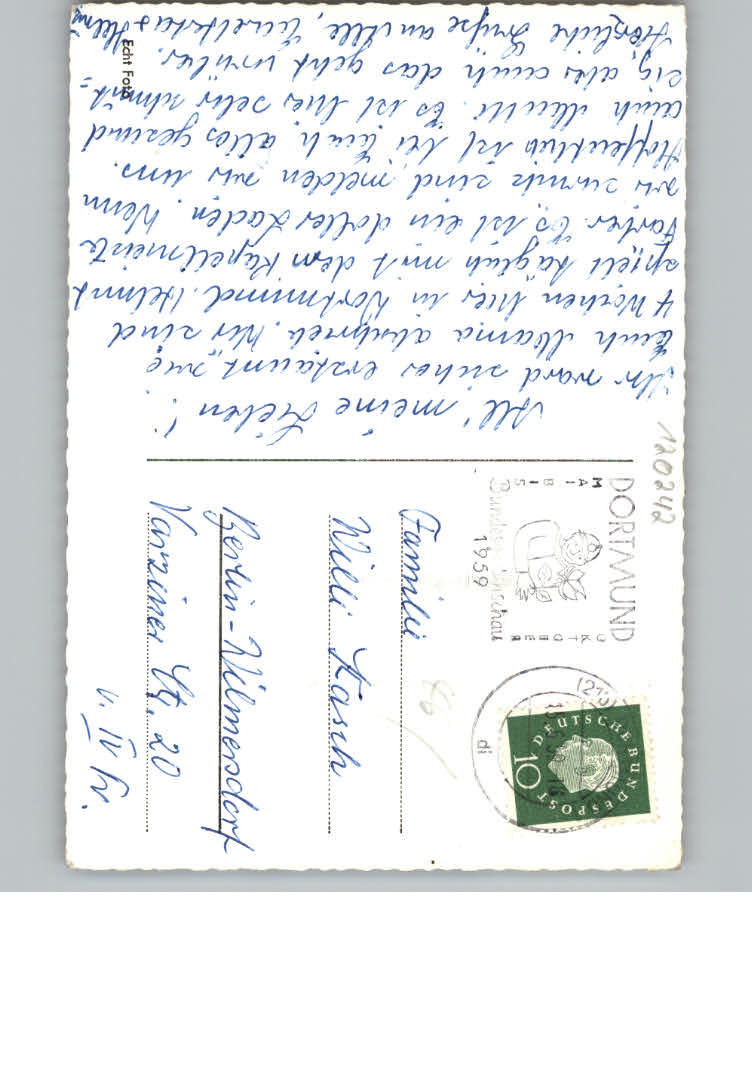 All' meine Lieben!
Ihr ward sicher erstaunt, wie
Euch Mama abschrieb. Wir sind
4 Wochen hier in Dortmund. Helmut
spielt täglich mit dem Kapellmeister
Farber. Es ist ein doller Laden. Wenn
wir zurück sind, melden wir uns.
Hoffentlich ist bei Euch alles gesund
auch Mutti. Es ist hier sehr schmut=
zig, aber auch das geht vorüber.
Herzliche Grüße an alle,
Echt Foto
120242
DORTMUND
MAI BIS OKTOBER
1959
Bundesgartenschau
DEUTSCHE BUNDESPOST
10
(22a)
di
86
Familie
Willi Kasch
Berlin-Wilmersdorf
Varziner Str. 20
v. IV Tr.